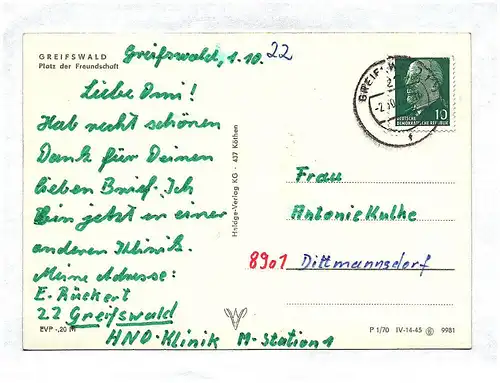 GREIFSWALD
Platz der Freundschaft
Greifswald, 1.10. 22
Liebe Omi!
Hab recht schönen
Dank für Deinen
lieben Brief. Ich
bin jetzt in einer
anderen Klinik.
Meine Adresse:
E. Rückert
22 Greifswald
HNO-Klinik M-Station 1
EVP -,20 M
Heldge-Verlag KG · 437 Köthen
GREIFSW
DEUTSCHE
DEMOKRATISCHE REPUBLIK
10
Frau
Antonie Kuthe
8901 Dittmannsdorf
P 1/70 IV-14-45 9981